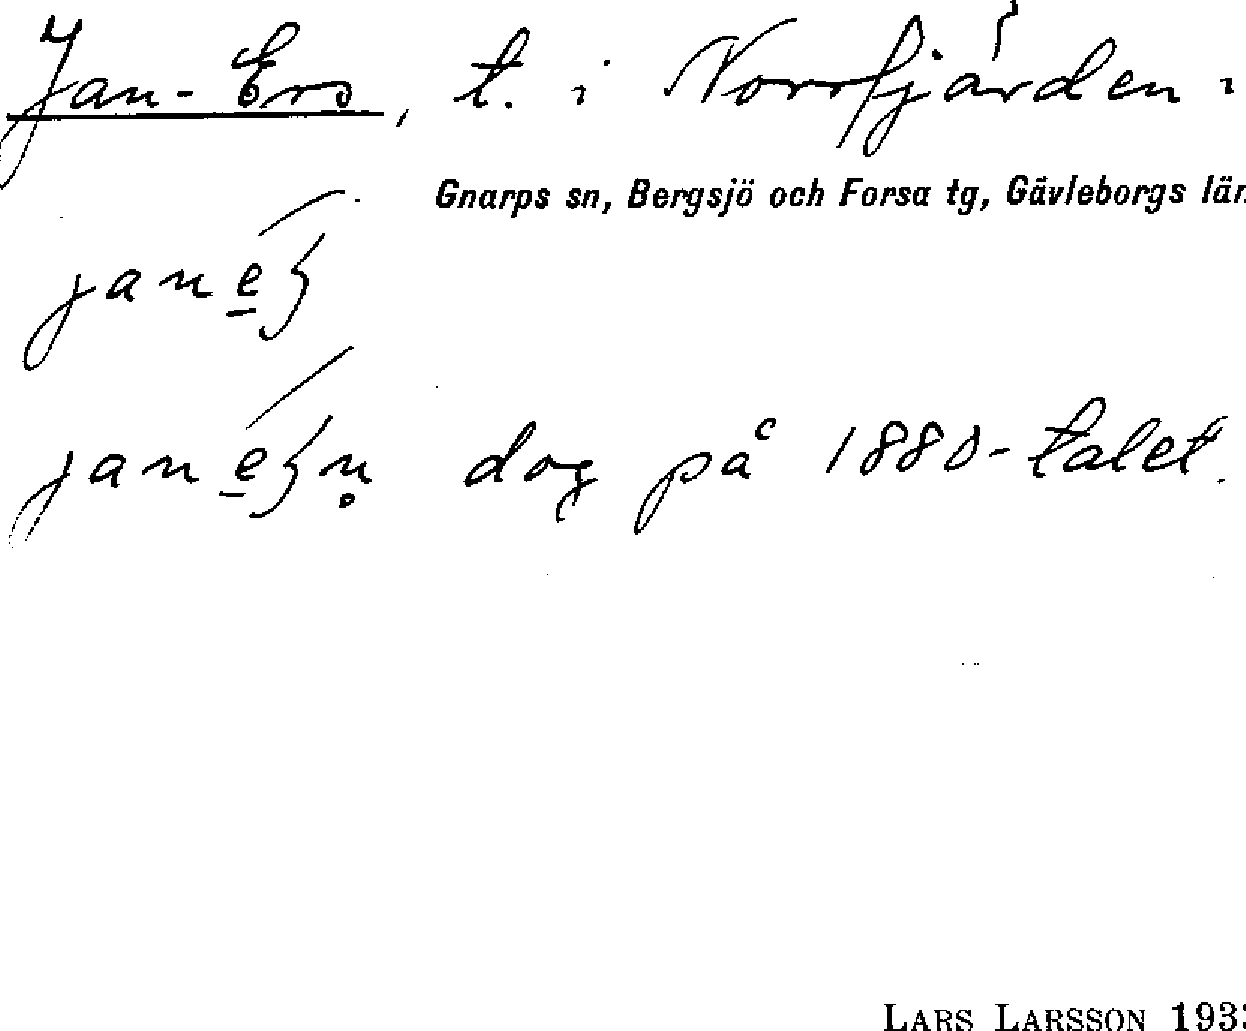 Jan-Ers, t. i Norrfjärden i
Gnarps sn, Bergsjö och Forsa tg, Gävleborgs län
dog på 1880-talet.
LARS LARSSON 193